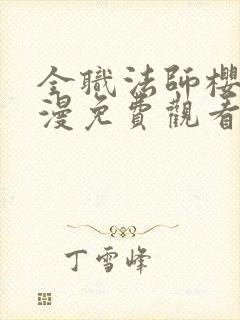 全職法師櫻
漫免費觀看
丁雪峰